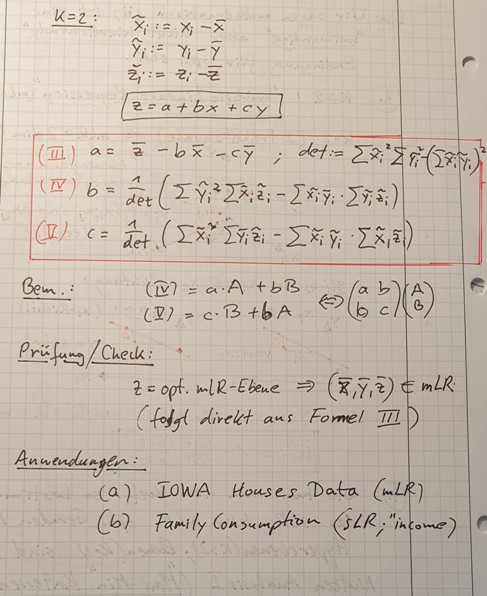 K=2: x̃ᵢ := xᵢ - x̄
ỹᵢ := yᵢ - ȳ
z̃ᵢ := zᵢ - z̄
z = a + bx + cy
(III) a = z̄ - b x̄ - c ȳ ; det := ∑x̃ᵢ² ∑ỹᵢ² - (∑x̃ᵢỹᵢ)²
(IV) b = 1/det (∑ỹᵢ² ∑x̃ᵢz̃ᵢ - ∑x̃ᵢỹᵢ · ∑ỹᵢz̃ᵢ)
(V) c = 1/det (∑x̃ᵢ² ∑ỹᵢz̃ᵢ - ∑x̃ᵢỹᵢ · ∑x̃ᵢz̃ᵢ)
Bem.: (IV) = a·A + bB ⇔ (a b) (A)
(V) = c·B + bA (b c) (B)
Prüfung/Check:
z = opt. mLR-Ebene ⇒ (x̄, ȳ, z̄) ∈ mLR
(folgt direkt aus Formel III)
Anwendungen:
(a) IOWA Houses Data (mLR)
(b) Family Consumption (sLR; "income)